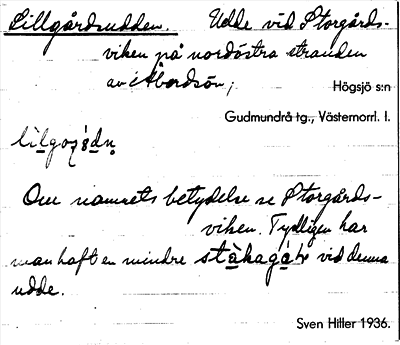 Lillgårdsudden. Udde vid Storgårds-
viken på nordöstra stranden
av Åbordsön;
Högsjö s:n
Gudmundrå tg., Västernorrl. l.
Om namnets betydelse se Storgårds-
viken. Tydligen har
man haft en mindre vid denna
udde.
Sven Hitter 1936.